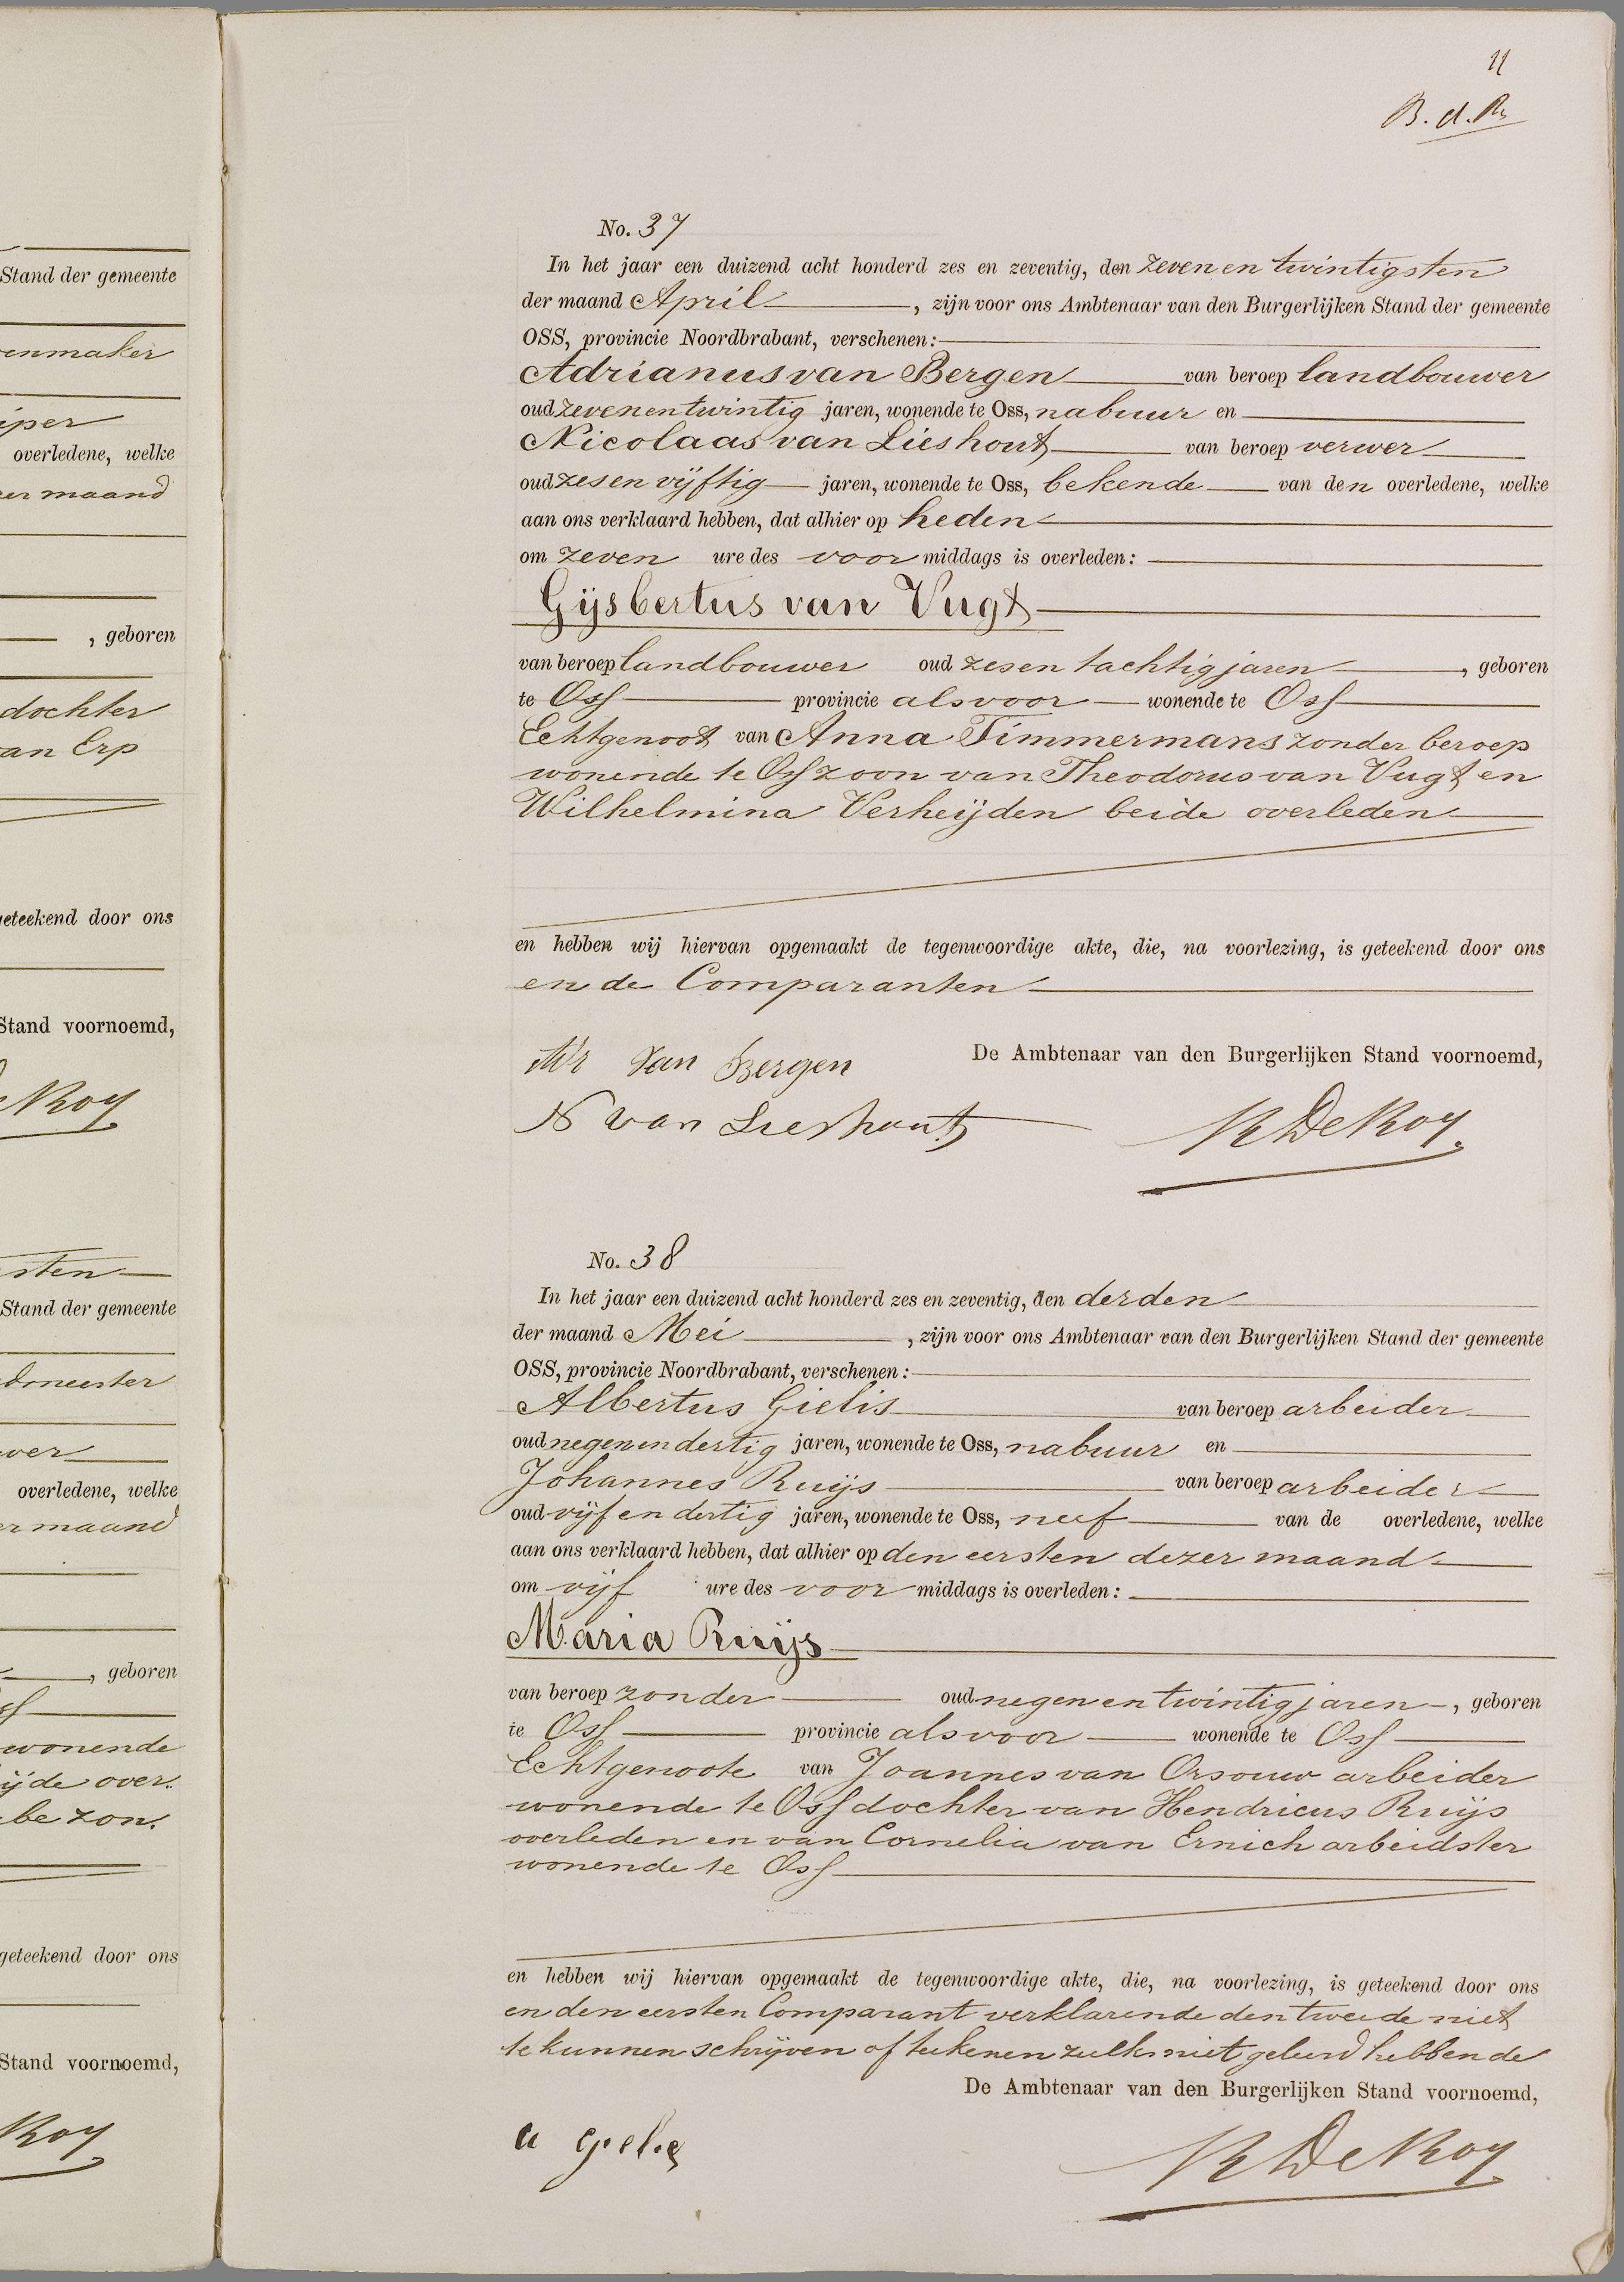 Stand der gemeente
enmaker
iper
overledene, welke
er maand
, geboren
dochter
an Erp
geteekend door ons
Stand voornoemd,
Roy
sten
Stand der gemeente
dmeester
wer
overledene, welke
er maand
, geboren
wonende
ijde over.
be zon.
geteekend door ons
Stand voornoemd,
Roy
11
B. d. R
No. 37
In het jaar een duizend acht honderd zes en zeventig, den zeven en twintigsten
der maand April, zijn voor ons Ambtenaar van den Burgerlijken Stand der gemeente
OSS, provincie Noordbrabant, verschenen:
Adrianus van Bergen van beroep landbouwer
oud zevenentwintig jaren, wonende te Oss, nabuur en
Nicolaas van Lieshout van beroep verwer
oud zesenvijftig jaren, wonende te Oss, bekende van den overledene, welke
aan ons verklaard hebben, dat alhier op heden
om zeven ure des voor middags is overleden:
Gijsbertus van Vugt
van beroep landbouwer oud zesen tachtig jaren, geboren
te Oss provincie alsvoor wonende te Oss
Echtgenoot van Anna Timmermans zonder beroep
wonende te Oss zoon van Theodorus van Vugt en
Wilhelmina Verheijden beide overleden
en hebben wij hiervan opgemaakt de tegenwoordige akte, die, na voorlezing, is geteekend door ons
en de Comparanten
De Ambtenaar van den Burgerlijken Stand voornoemd,
van Bergen
N van Lieshout
De Roy
No. 38
In het jaar een duizend acht honderd zes en zeventig, den derden
der maand Mei, zijn voor ons Ambtenaar van den Burgerlijken Stand der gemeente
OSS, provincie Noordbrabant, verschenen:
Albertus Gielis van beroep arbeider
oud negenendertig jaren, wonende te Oss, nabuur en
Johannes Ruijs van beroep arbeider
oud vijfendertig jaren, wonende te Oss, neef van de overledene, welke
aan ons verklaard hebben, dat alhier op den eersten dezer maand
om vijf ure des voor middags is overleden:
Maria Ruijs
van beroep zonder oud negenentwintig jaren, geboren
te Oss provincie alsvoor wonende te Oss
Echtgenoote van Joannes van Orsouw arbeider
wonende te Oss dochter van Hendricus Ruijs
overleden en van Cornelia van Ernich arbeidster
wonende te Oss
en hebben wij hiervan opgemaakt de tegenwoordige akte, die, na voorlezing, is geteekend door ons
en den eersten Comparant verklarende den tweede niet
te kunnen schrijven of teekenen zulks niet geleerd hebbende
De Ambtenaar van den Burgerlijken Stand voornoemd,
De Roy